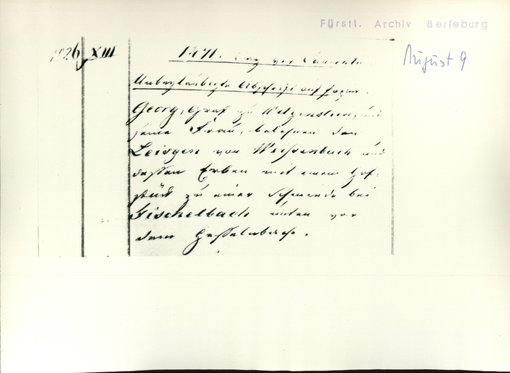 Fürstl. Archiv Berleburg
August 9
26, XIII
1471. Tag vor Laurentii
Unbeglaubigte Abschrift auf Papier.
Georg, Graf zu Witgenstein, und
seine Frau, belehnen den
Leisgen von Weissenbach und
dessen Erben mit einem Hof-
stück zu einer Schmiede bei
Fischelbach unten vor
dem